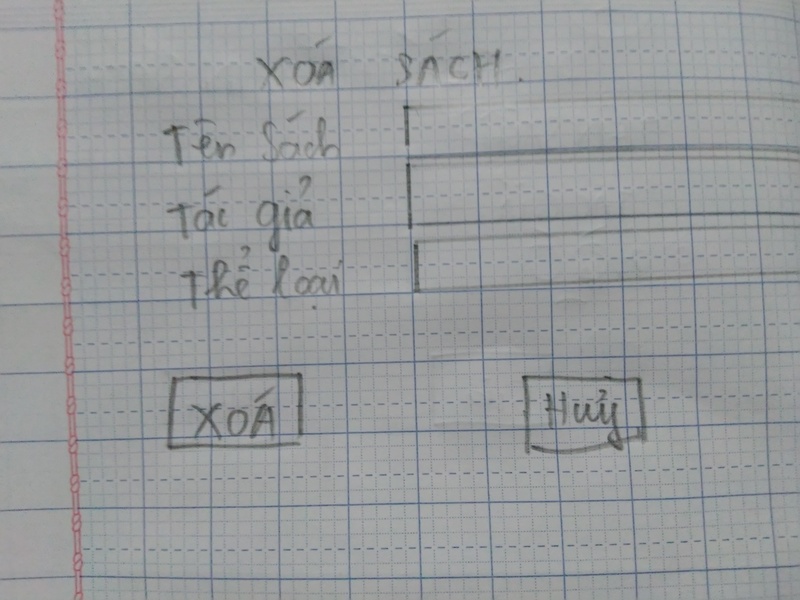 XOÁ SÁCH.
Tên sách
Tác giả
Thể loại
XOÁ Huỷ